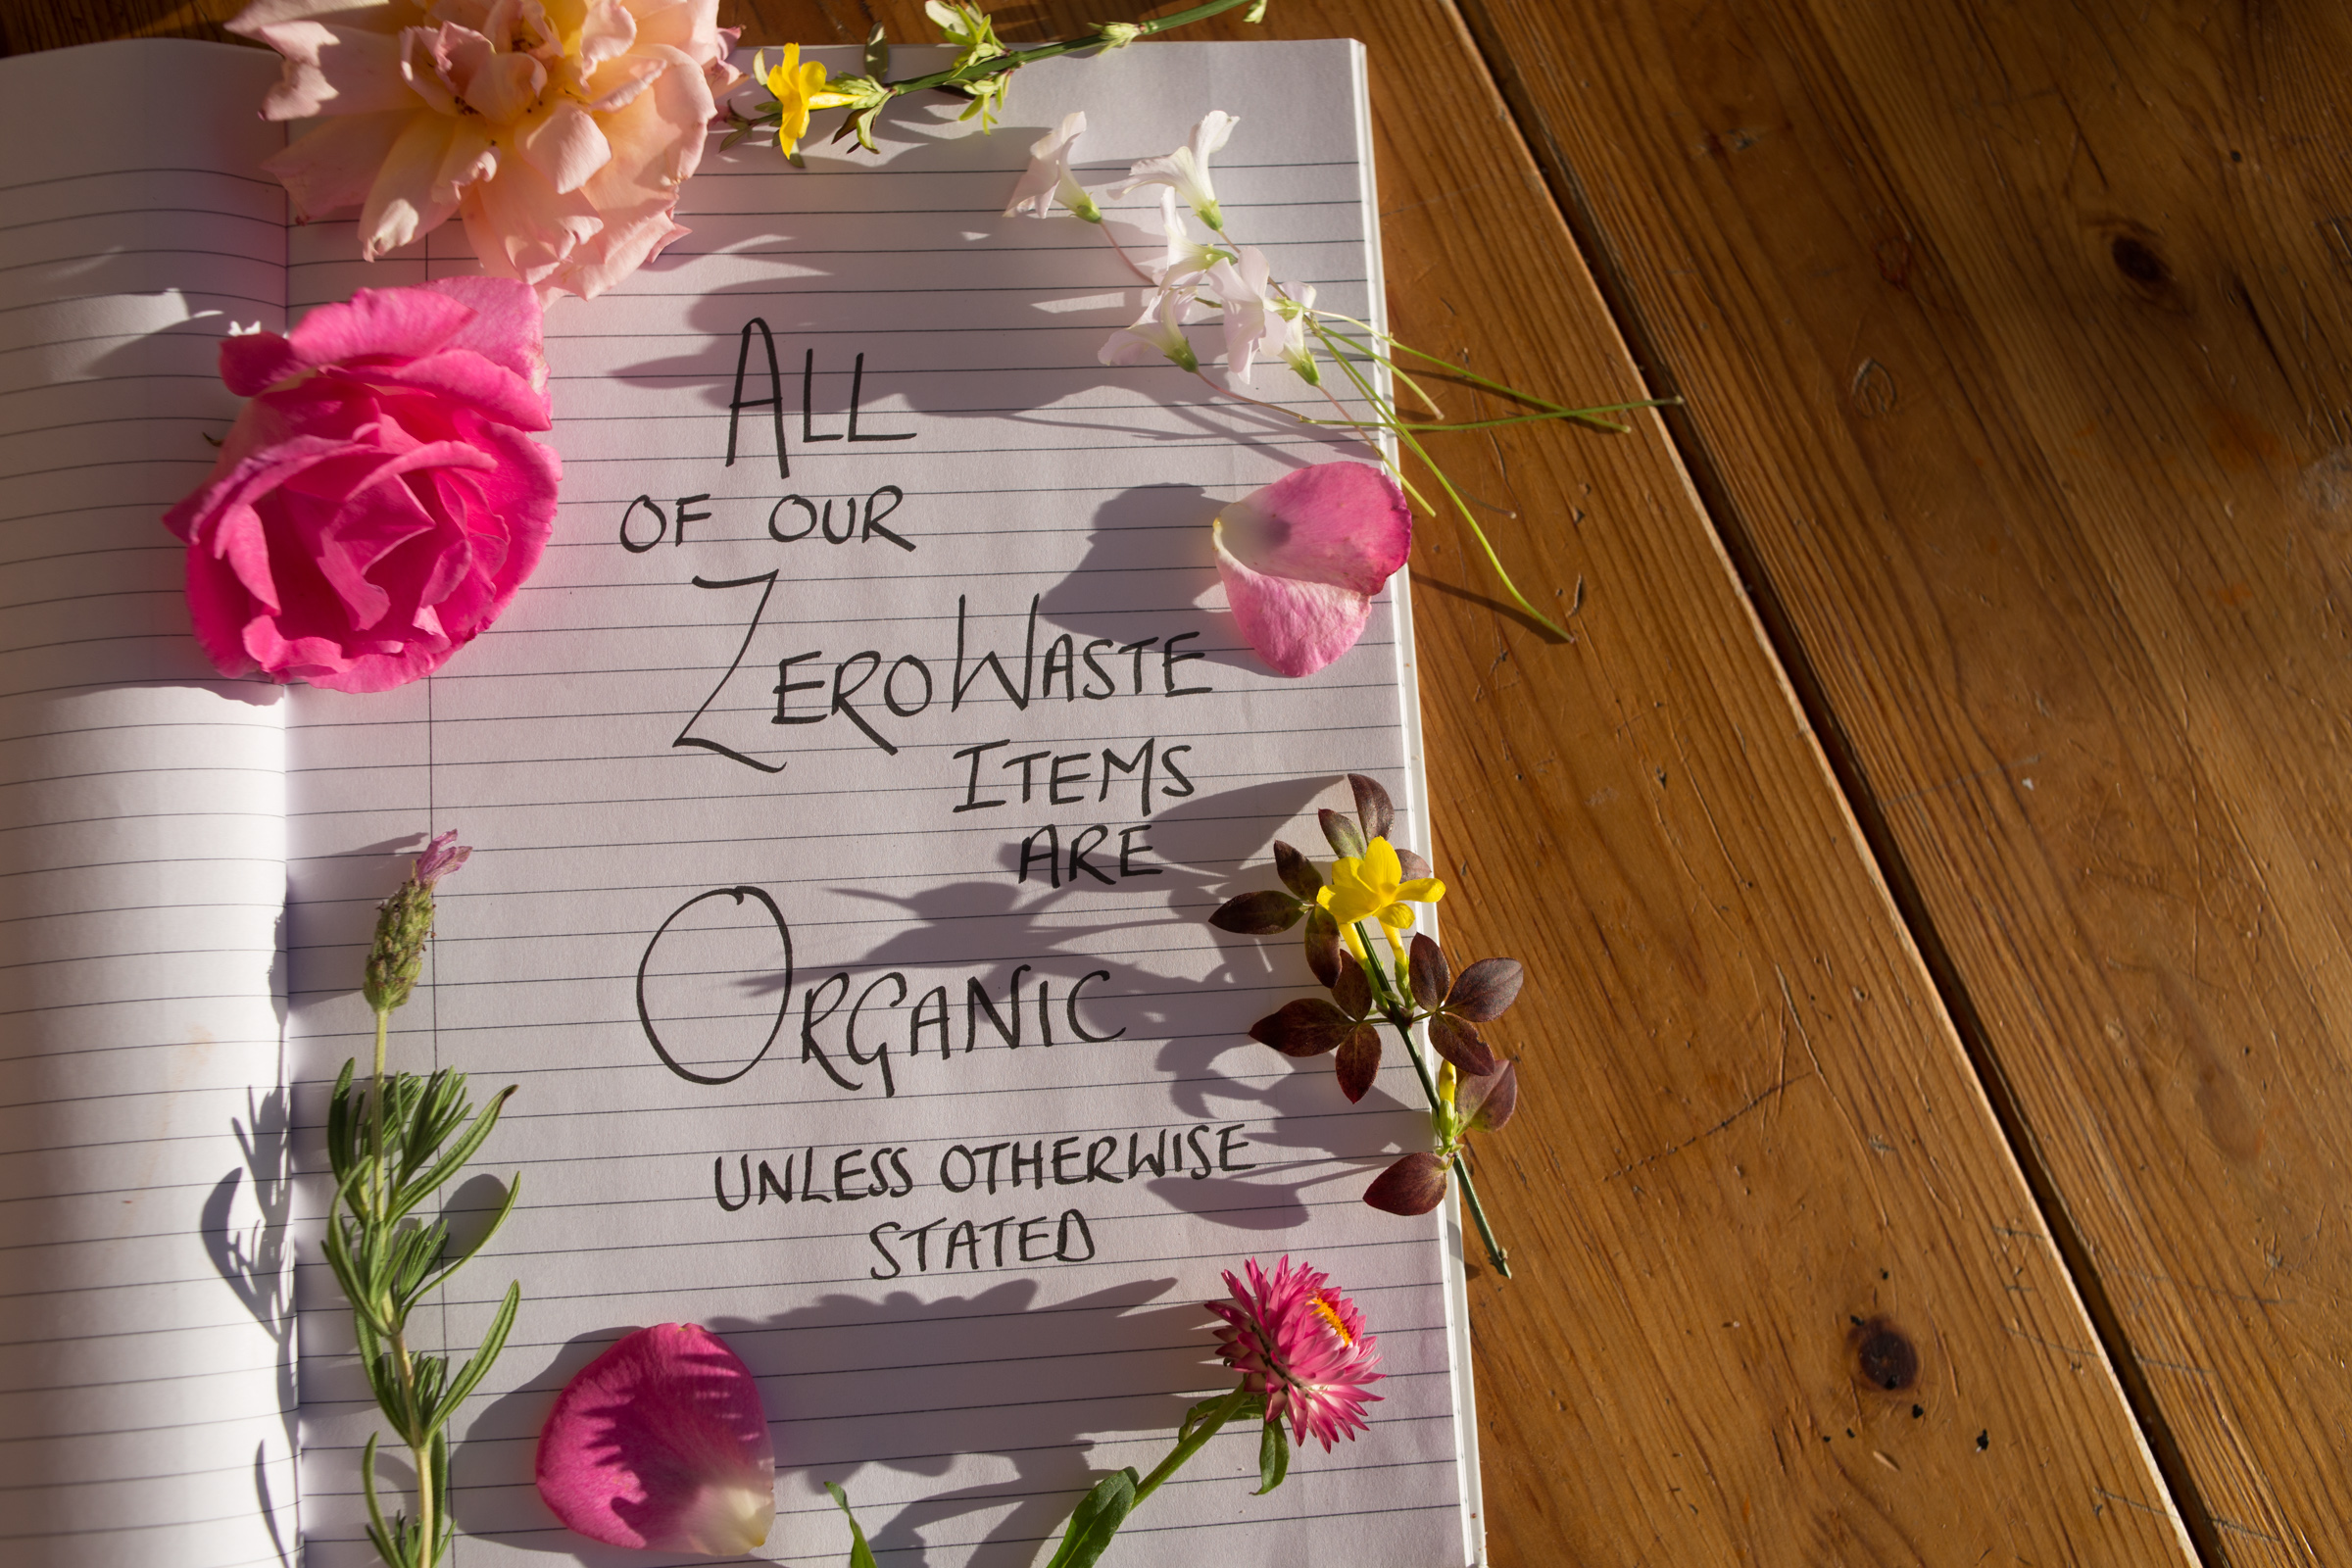 ALL
OF OUR
ZERO WASTE
ITEMS
ARE
ORGANIC
UNLESS OTHERWISE
STATED